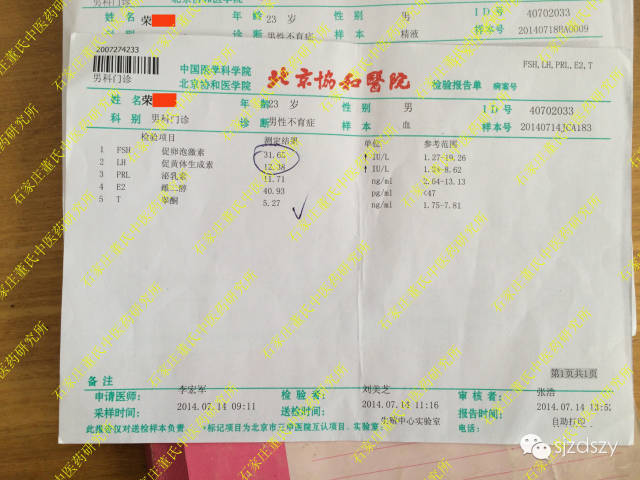 男科门诊
姓 名 荣 年 龄 23 岁 性 别 男 ID号 40702033
诊 断 男性不育症 样 本 精液 样本号
2007274233
男科门诊
中国医学科学院
北京协和医学院
北京協和醫院
检验报告单 病案号
FSH,LH,PRL,E2,T
姓 名 荣 年 龄 23 岁 性 别 男 ID号 40702033
科 别 男科门诊 诊 断 男性不育症 样 本 血 样本号 20140714JCA183
检验项目 测定结果 单位 参考范围
1 FSH 促卵泡激素 31.65 ↑ IU/L 1.27-19.26
2 LH 促黄体生成素 12.38 ↑ IU/L 1.24-8.62
3 PRL 泌乳素 11.71 ng/ml 2.64-13.13
4 E2 雌二醇 40.93 pg/ml <47
5 T 睾酮 5.27 ng/ml 1.75-7.81
第1页共1页
备 注
申请医师: 李宏军 检 验 者: 刘美芝 审 核 者: 张浩
采样时间: 2014.07.14 09:11 送检时间: 2014.07.14 11:16 报告时间: 2014.07.14 13:52
此报告仅对送检样本负责 标记项目为北京市三甲医院互认项目. 实验室: 生殖中心实验室 电话: 自助打印
石家庄董氏中医药研究所
sjzdszy